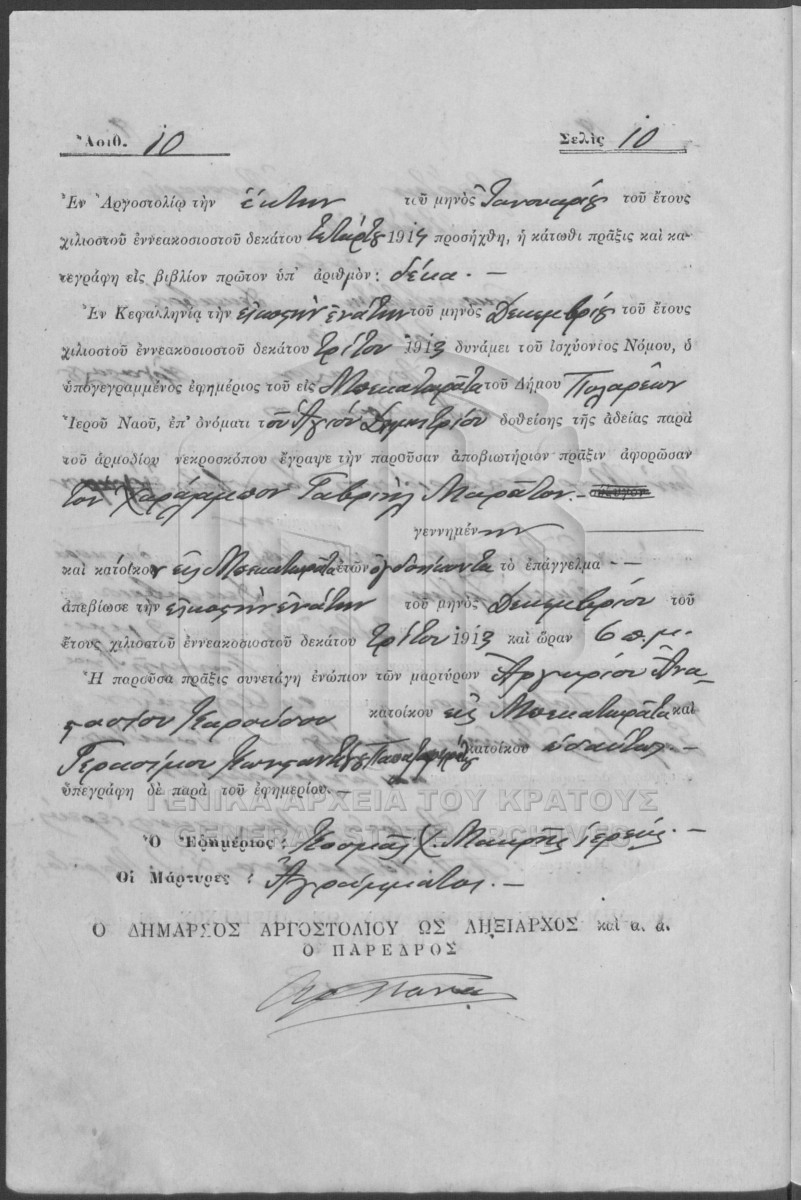 Ἀριθ. 10 Σελὶς 10
Ἐν Ἀργοστολίῳ τὴν ἕκτην τοῦ μηνὸς Ἰανουαρίου τοῦ ἔτους
χιλιοστοῦ ἐννεακοσιοστοῦ δεκάτου τετάρτου 1914 προσήχθη, ἡ κάτωθι πρᾶξις καὶ κα-
τεγράφη εἰς βιβλίον πρῶτον ὑπ' ἀριθμὸν: δέκα. —
Ἐν Κεφαλληνίᾳ τὴν εἰκοστὴν ἐνάτην τοῦ μηνὸς Δεκεμβρίου τοῦ ἔτους
χιλιοστοῦ ἐννεακοσιοστοῦ δεκάτου τρίτου 1913 δυνάμει τοῦ ἰσχύοντος Νόμου, ὁ
ὑπογεγραμμένος ἐφημέριος τοῦ εἰς Μπεκατωρᾶτα τοῦ Δήμου Παλαρέων
Ἱεροῦ Ναοῦ, ἐπ' ὀνόματι τοῦ Ἁγίου Δημητρίου δοθείσης τῆς ἀδείας παρὰ
τοῦ ἁρμοδίου νεκροσκόπου ἔγραψε τὴν παροῦσαν ἀποβιωτήριον πρᾶξιν ἀφορῶσαν
τὸν Χαράλαμπον Γαβριὴλ Μαρᾶτον —
γεννημένον
καὶ κάτοικον εἰς Μπεκατωρᾶτα ἐτῶν ὀγδοήκοντα τὸ ἐπάγγελμα - -
ἀπεβίωσε τὴν εἰκοστὴν ἐνάτην τοῦ μηνὸς Δεκεμβρίου τοῦ
ἔτους χιλιοστοῦ ἐννεακοσιοστοῦ δεκάτου τρίτου 1913 καὶ ὥραν 6 π.μ.
Ἡ παροῦσα πρᾶξις συνετάγη ἐνώπιον τῶν μαρτύρων Ἀργυρίου Ἀνα-
στασίου Καρούσου κατοίκου εἰς Μπεκατωρᾶτα καὶ
Γερασίμου Κωνσταντ. κατοίκου ὡσαύτως. —
ὑπεγράφη δὲ παρὰ τοῦ ἐφημερίου. —
ΓΕΝΙΚΑ ΑΡΧΕΙΑ ΤΟΥ ΚΡΑΤΟΥΣ
GENERAL STATE ARCHIVES
Ὁ Ἐφημέριος: Κοσμᾶς Χ. Μακρῆς ἱερεύς. —
Οἱ Μάρτυρες: Ἀγράμματοι. —
Ο ΔΗΜΑΡΧΟΣ ΑΡΓΟΣΤΟΛΙΟΥ ΩΣ ΛΗΞΙΑΡΧΟΣ καὶ α. α.
Ο ΠΑΡΕΔΡΟΣ